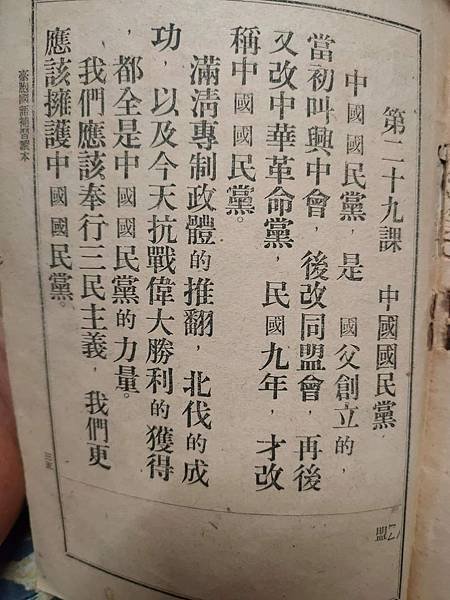 第二十九課　中國國民黨
中國國民黨，是　國父創立的，
當初叫興中會，後改同盟會，再後
又改中華革命黨，民國九年，才改
稱中國國民黨。
滿清專制政體的推翻，北伐的成
功，以及今天抗戰偉大勝利的獲得
，都全是中國國民黨的力量。
我們應該奉行三民主義，我們更
應該擁護中國國民黨。
臺胞國語補習讀本
三五
盟